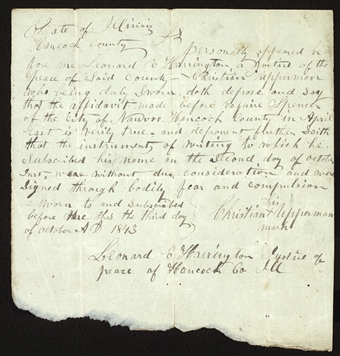 State of Illinois
Hancock County } SS
Personally appeared be
fore me Leonard E Harrington a Justice of the
peace of Said County Christian Upperman
who being duly Sworn doth depose and say
that the affidavit made before Squire Spencer
of the City of Nauvoo Hancock County in April
Last is verily true and deponent further Saith
that the instruments of writing to which he
Subscribed his name on the Second day of october
Inst, were without due consideration and were
Signed through bodily fear and compulsion
Sworn to and Subscribed
before me this the third day
of October AD 1843
his
Christian Upperman
mark
Leonard E Harrington Justice of
peace of Hancock Co Ill